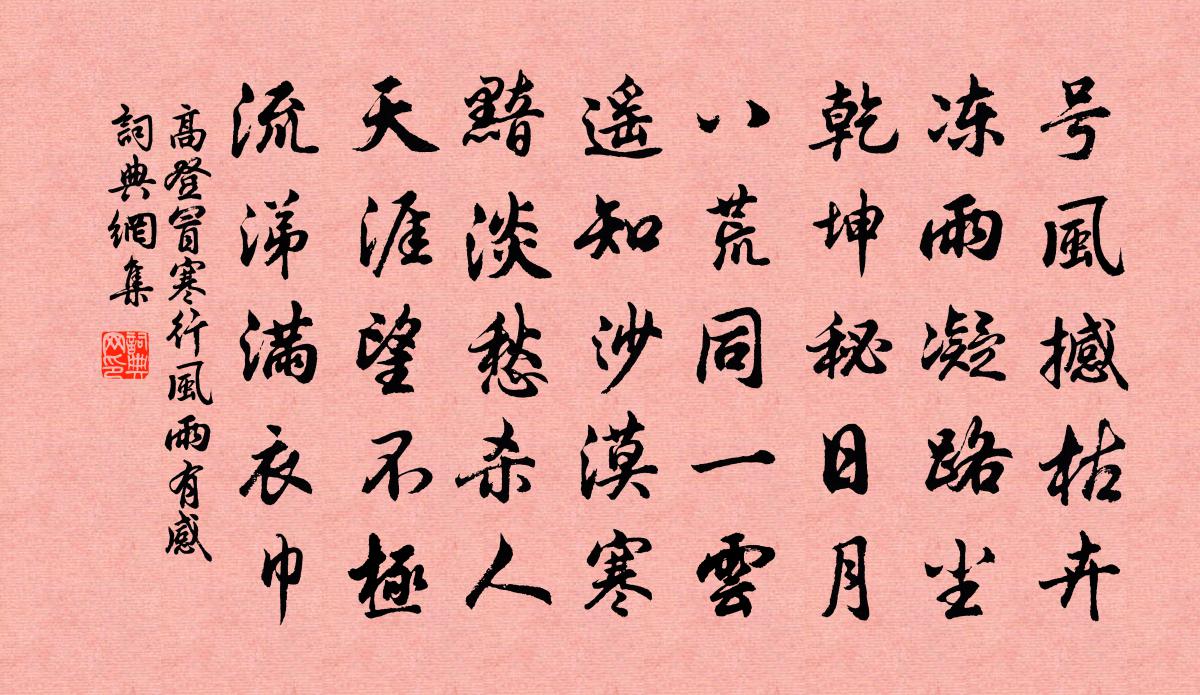 号風撼枯卉
冻雨凝路尘
乾坤秘日月
八荒同一雲
遥知沙漠寒
黯淡愁杀人
天涯望不極
流涕满衣巾
高登冒寒行風雨有感
詞典網集
詞典网印